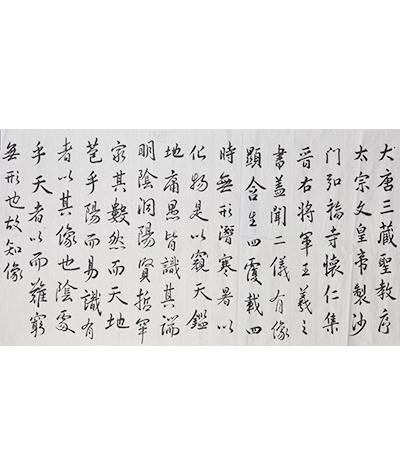 大唐三藏聖教序
太宗文皇帝製沙
門弘福寺懷仁集
晉右將軍王羲之
書蓋聞二儀有像
顯含生四覆載四
時無形潛寒暑以
化物是以窺天鑑
地庸愚皆識其端
明陰洞陽賢哲罕
窮其數然而天地
苞乎陽而易識有
者以其像也陰處
乎天者以而難窮
無形也故知像